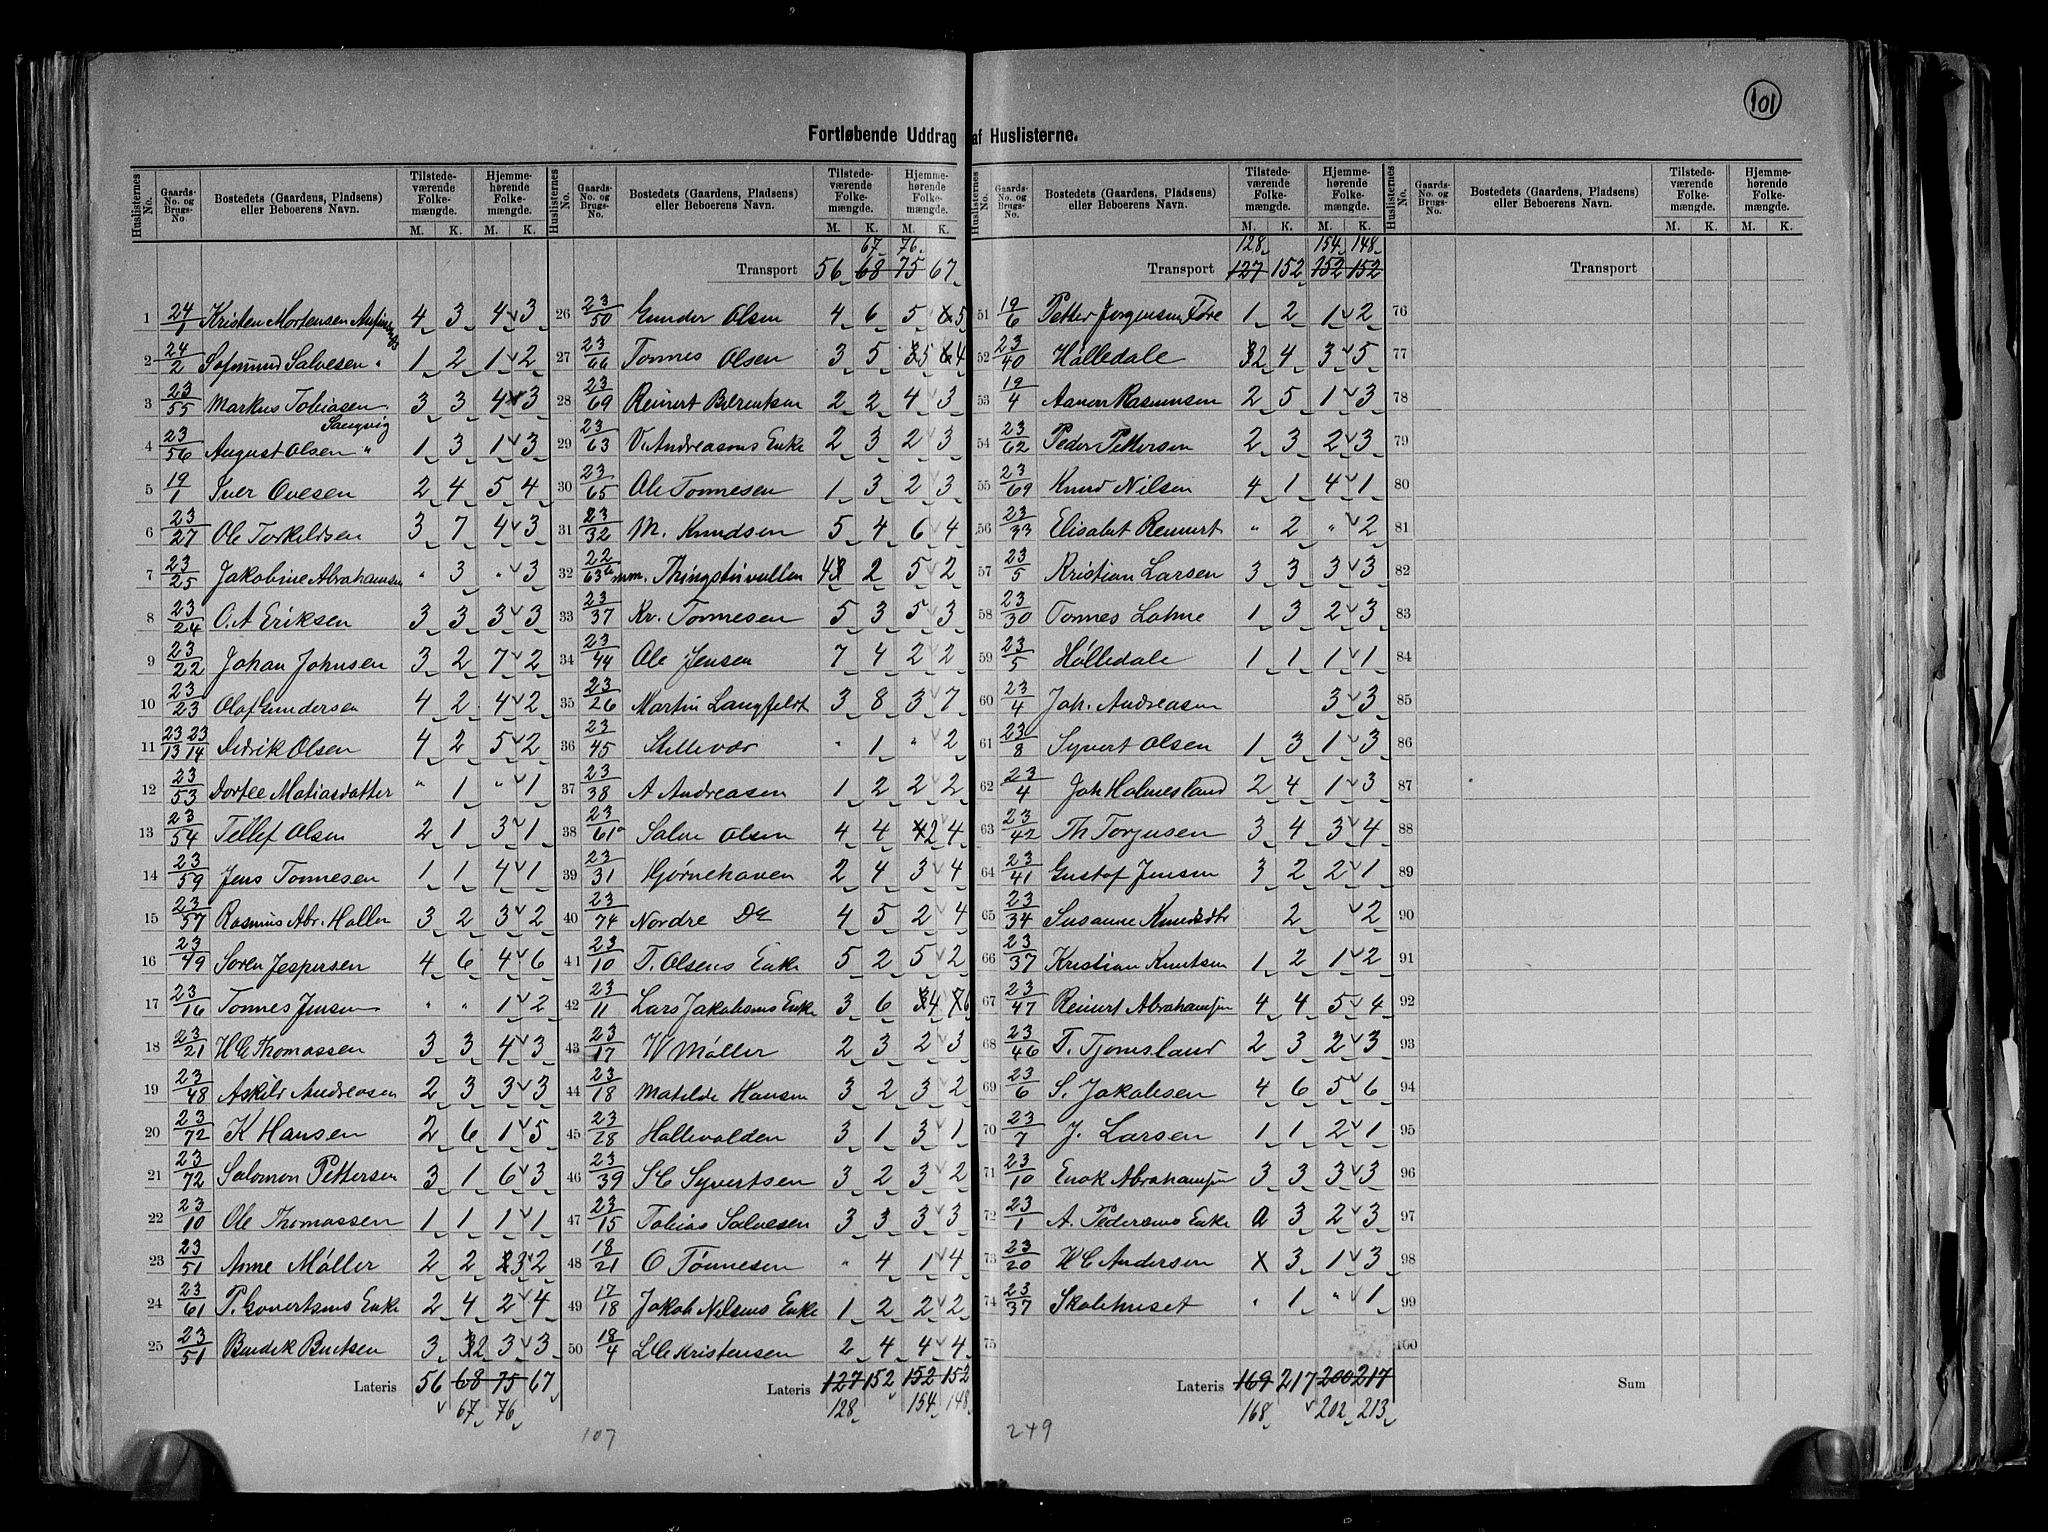 101
Fortløbende Uddrag af Huslisterne.
Huslisternes No. Gaards-No. og Brugs-No. Bostedets (Gaardens, Pladsens) eller Beboerens Navn. Tilstedeværende Folkemængde. M. K. Hjemmehørende Folkemængde. M. K.
1 24/1 Kristen Mortensen 4 3 4 3
2 24/2 Salvesen " 1 2 1 2
3 23/55 Markus Tobiasen Langvig 3 3 4 3
4 23/56 August Olsen " 1 3 1 3
5 19/1 Iver Ovesen 2 4 5 4
6 23/27 Ole Torkildsen 3 7 4 3
7 23/25 Jakobine Abrahamsen " 3 " 3
8 23/24 O. A Eriksen 3 3 3 3
9 23/22 Johan Johnsen 3 2 7 2
10 23/23 Olaf Gundersen 4 2 4 2
11 23/13 23/14 Fredrik Olsen 4 2 5 2
12 23/53 Dortee Matiasdatter " 1 " 1
13 23/54 Tellef Olsen 2 1 3 1
14 23/59 Jens Tonnesen 1 1 4 1
15 23/57 Rasmus Abr. Holler 3 2 3 2
16 23/49 Soren Jespersen 4 6 4 6
17 23/16 Tonnes Jensen " " 1 2
18 23/21 H C Thomassen 3 3 4 3
19 23/48 Askild Andreasen 2 3 3 3
20 23/72 K Hansen 2 6 1 5
21 23/72 Salomon Pettersen 3 1 6 3
22 23/10 Ole Thomassen 1 1 1 1
23 23/51 Anne Møller 2 2 3 2
24 23/61 P. Govertsens Enke 2 4 2 4
25 23/51 Bendik Buntsen 3 2 3 3
Lateris 56 68 75 67
67 76
107
Huslisternes No. Gaards-No. og Brugs-No. Bostedets (Gaardens, Pladsens) eller Beboerens Navn. Tilstedeværende Folkemængde. M. K. Hjemmehørende Folkemængde. M. K.
67 76
Transport 56 68 75 67
26 23/50 Gunder Olsen 4 6 5 5
27 23/66 Tonnes Olsen 3 5 5 4
28 23/69 Reinert Berentsen 2 2 4 3
29 23/63 V. Andreasens Enke 2 3 2 3
30 23/65 Ole Tonnesen 1 3 2 3
31 23/32 M. Knudsen 5 4 6 4
32 22/63 4 2 5 2
33 23/37 Kr. Tonnesen 5 3 5 3
34 23/44 Ole Jensen 7 4 2 2
35 23/26 Martin Langfeldt 3 8 3 7
36 23/45 Stillevar " 1 " 2
37 23/38 A Andreasen 1 2 2 2
38 23/61a Salve Olsen 4 4 2 4
39 23/31 Hjørnehaven 2 4 3 4
40 23/74 Nordre Do 4 5 2 4
41 23/10 T. Olsens Enke 5 2 5 2
42 23/11 Lars Jakobsens Enke 3 6 4 6
43 23/17 W Møller 2 3 2 3
44 23/18 Matilde Hansen 3 2 3 2
45 23/28 Hallevolden 3 1 3 1
46 23/39 S C Syvertsen 3 2 3 2
47 23/15 Tobias Salvesen 3 3 3 3
48 18/21 O Tønnesen " 4 1 4
49 17/18 Jakob Nilsens Enke 1 2 2 2
50 18/4 L C Kristensen 2 4 4 4
Lateris 127 152 152 152
128 154 148
Huslisternes No. Gaards-No. og Brugs-No. Bostedets (Gaardens, Pladsens) eller Beboerens Navn. Tilstedeværende Folkemængde. M. K. Hjemmehørende Folkemængde. M. K.
128 154 148
Transport 127 152 152 152
51 19/6 Petter Jørgensen Fore 1 2 1 2
52 23/40 Holledale 2 4 3 5
53 19/4 Aanon Rasmusen 2 5 1 3
54 23/62 Peder Pettersen 2 3 2 3
55 23/69 Knud Nilsen 4 1 4 1
56 23/33 Elisabet Reinert " 2 " 2
57 23/5 Kristian Larsen 3 3 3 3
58 23/30 Tonnes Lohne 1 3 2 3
59 23/5 Hølledale 1 1 1 1
60 23/4 Joh. Andreasen 3 3
61 23/8 Syvert Olsen 1 3 1 3
62 23/4 Joh Holmesland 2 4 1 3
63 23/42 Th Torjusen 3 4 3 4
64 23/41 Gustof Jensen 3 2 2 1
65 23/34 Susanne Knudsdtr 2 2
66 23/37 Kristian Knutsen 1 2 1 2
67 23/47 Reinert Abrahamsen 4 4 5 4
68 23/46 T. Tjomsland 2 3 2 3
69 23/6 S. Jakobsen 4 6 5 6
70 23/7 J. Larsen 1 1 2 1
71 23/10 Enok Abrahamsen 3 3 3 3
72 23/1 A. Pedersens Enke 3 2 3
73 23/20 H C Andersen X 3 1 3
74 23/37 Skolehuset " 1 " 1
75
Lateris 169 217 200 217
168 202 213
249
Huslisternes No. Gaards-No. og Brugs-No. Bostedets (Gaardens, Pladsens) eller Beboerens Navn. Tilstedeværende Folkemængde. M. K. Hjemmehørende Folkemængde. M. K.
Transport
76
77
78
79
80
81
82
83
84
85
86
87
88
89
90
91
92
93
94
95
96
97
98
99
100
Sum